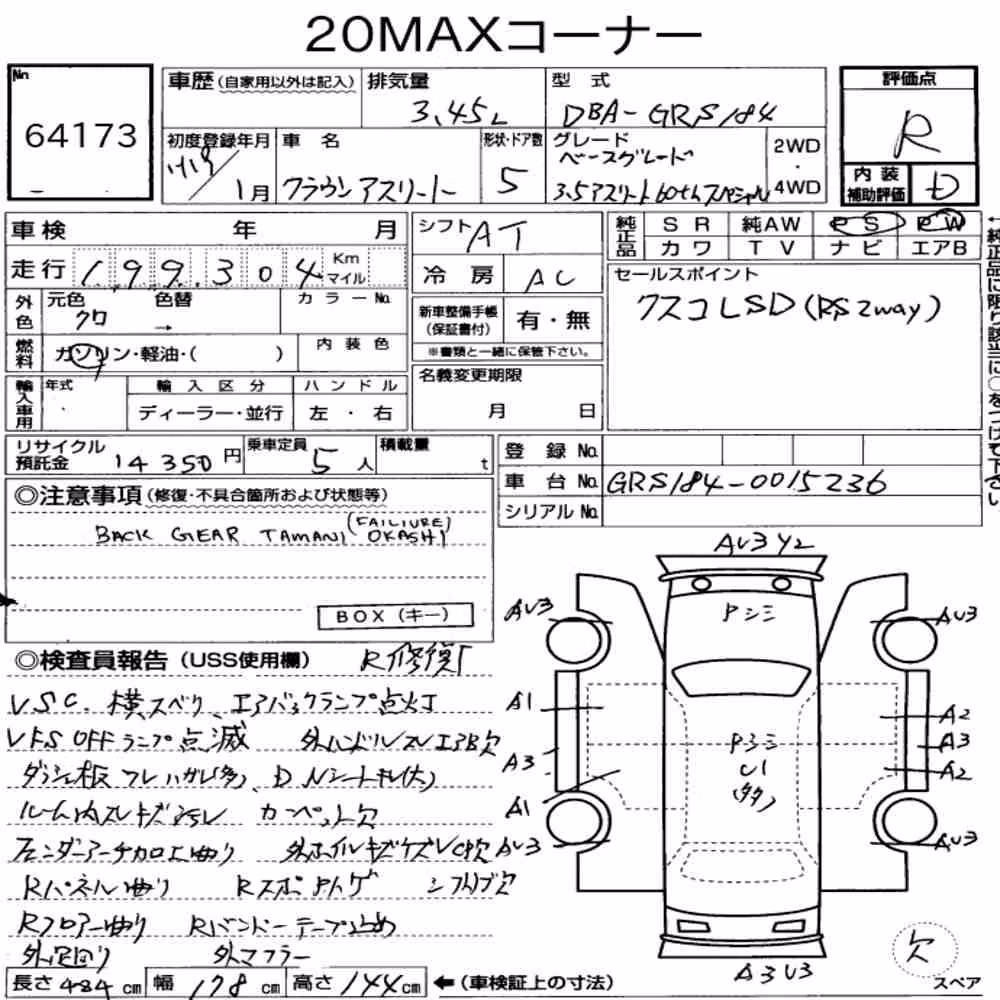 20MAXコーナー
No. 64173
車歴 (自家用以外は記入)
排気量 3.45L
型式 DBA-GRS184
評価点 R
初度登録年月 H19/1月
車名 クラウンアスリート
形状・ドア数 5
グレード ベースグレード
3.5アスリート60thスペシャル
2WD・4WD
内装補助評価 D
車検 年 月
走行 199,304 Km マイル
シフト AT
冷房 AC
純正品 SR 純AW PS PW
カワ TV ナビ エアB
←純正品に限り該当に○をつけて下さい
外色 元色 クロ 色替 → カラーNo.
燃料 ガソリン・軽油・( ) 内装色
新車整備手帳(保証書付) 有・無
※書類と一緒に保管下さい。
セールスポイント
クスコLSD(RS2way)
輸入車用 年式 輸入区分 ハンドル
ディーラー・並行 左・右
名義変更期限 月 日
リサイクル預託金 14350円
乗車定員 5人
積載量 t
登録No.
車台No. GRS184-0015236
シリアルNo.
◎注意事項(修復・不具合箇所および状態等)
BACK GEAR TAMANI (FAILIURE) OKASHI
BOX(キー)
◎検査員報告(USS使用欄) R修復
V.S.C. 横スベリ、エアバックランプ点灯
OFFランプ点滅 外ハンドル エアB欠
ダッシュ板 ハガレ(多)、D,Nシートキレ(大)
ルーム内スレキズ カーペット欠
フェンダーアーチカロエ曲り 外ホイルキズケズレ
Rパネル曲り Rスポ シフトノブ欠
Rフロアー曲り Rバンパーテープ止め
外足回り 外マフラー
長さ 484cm 幅 178cm 高さ 144cm ←(車検証上の寸法)
AU3 Y2
AU3
AU3
Pシミ
A1
A2
A3
A3
Pシミ
U1
(多)
A2
A1
AU3
AU3
A3 U3
欠
スペア